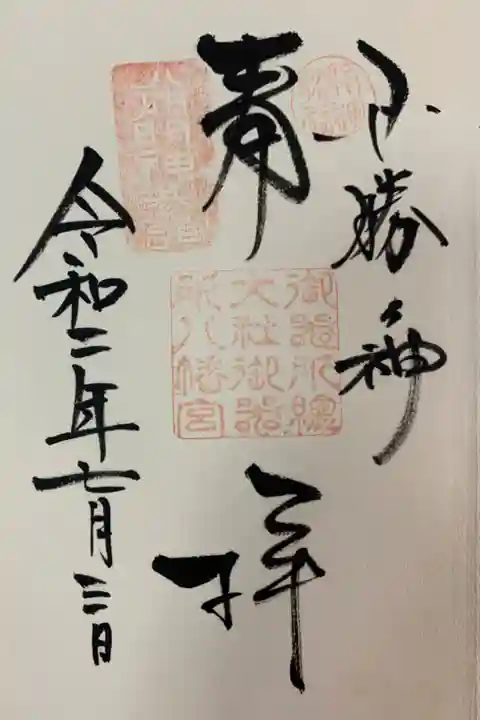 必勝之神
奉拝
御器所總
大社御器
所八幡宮
令和二年七月三日